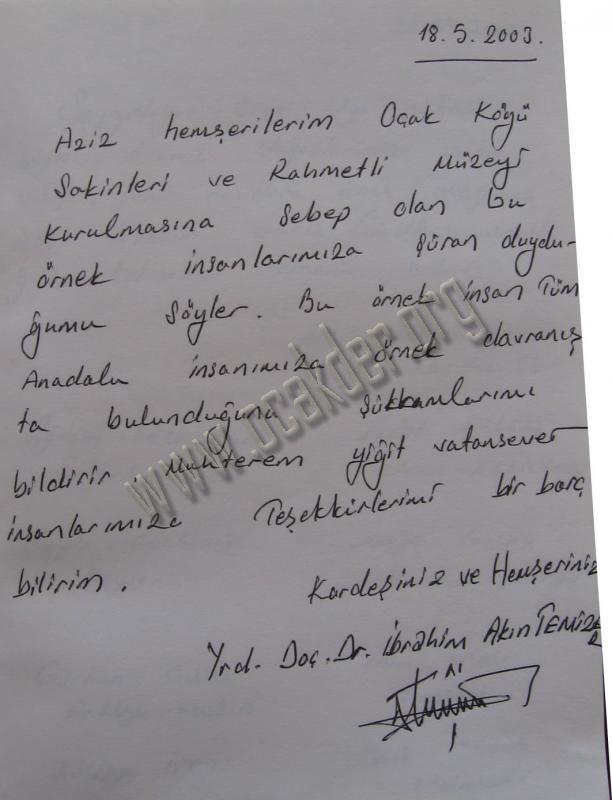 18.5.2003.
Aziz hemşerilerim Ocak Köyü
Sakinleri ve Rahmetli Müzeyi
kurulmasına Sebep olan bu
örnek insanlarımıza şüran duydu-
ğumu söyler. Bu örnek insan Tüm
Anadalu insanımıza örnek davranış
ta bulunduğunu şükranlarımı
bildirir. Muhterem yiğit vatansever
insanlarımıza Teşekkürlerimi bir borç
bilirim.
Kardeşiniz ve Hemşeriniz
Yrd. Doç. Dr. İbrahim Akın TEMİZER
www.ocakder.org